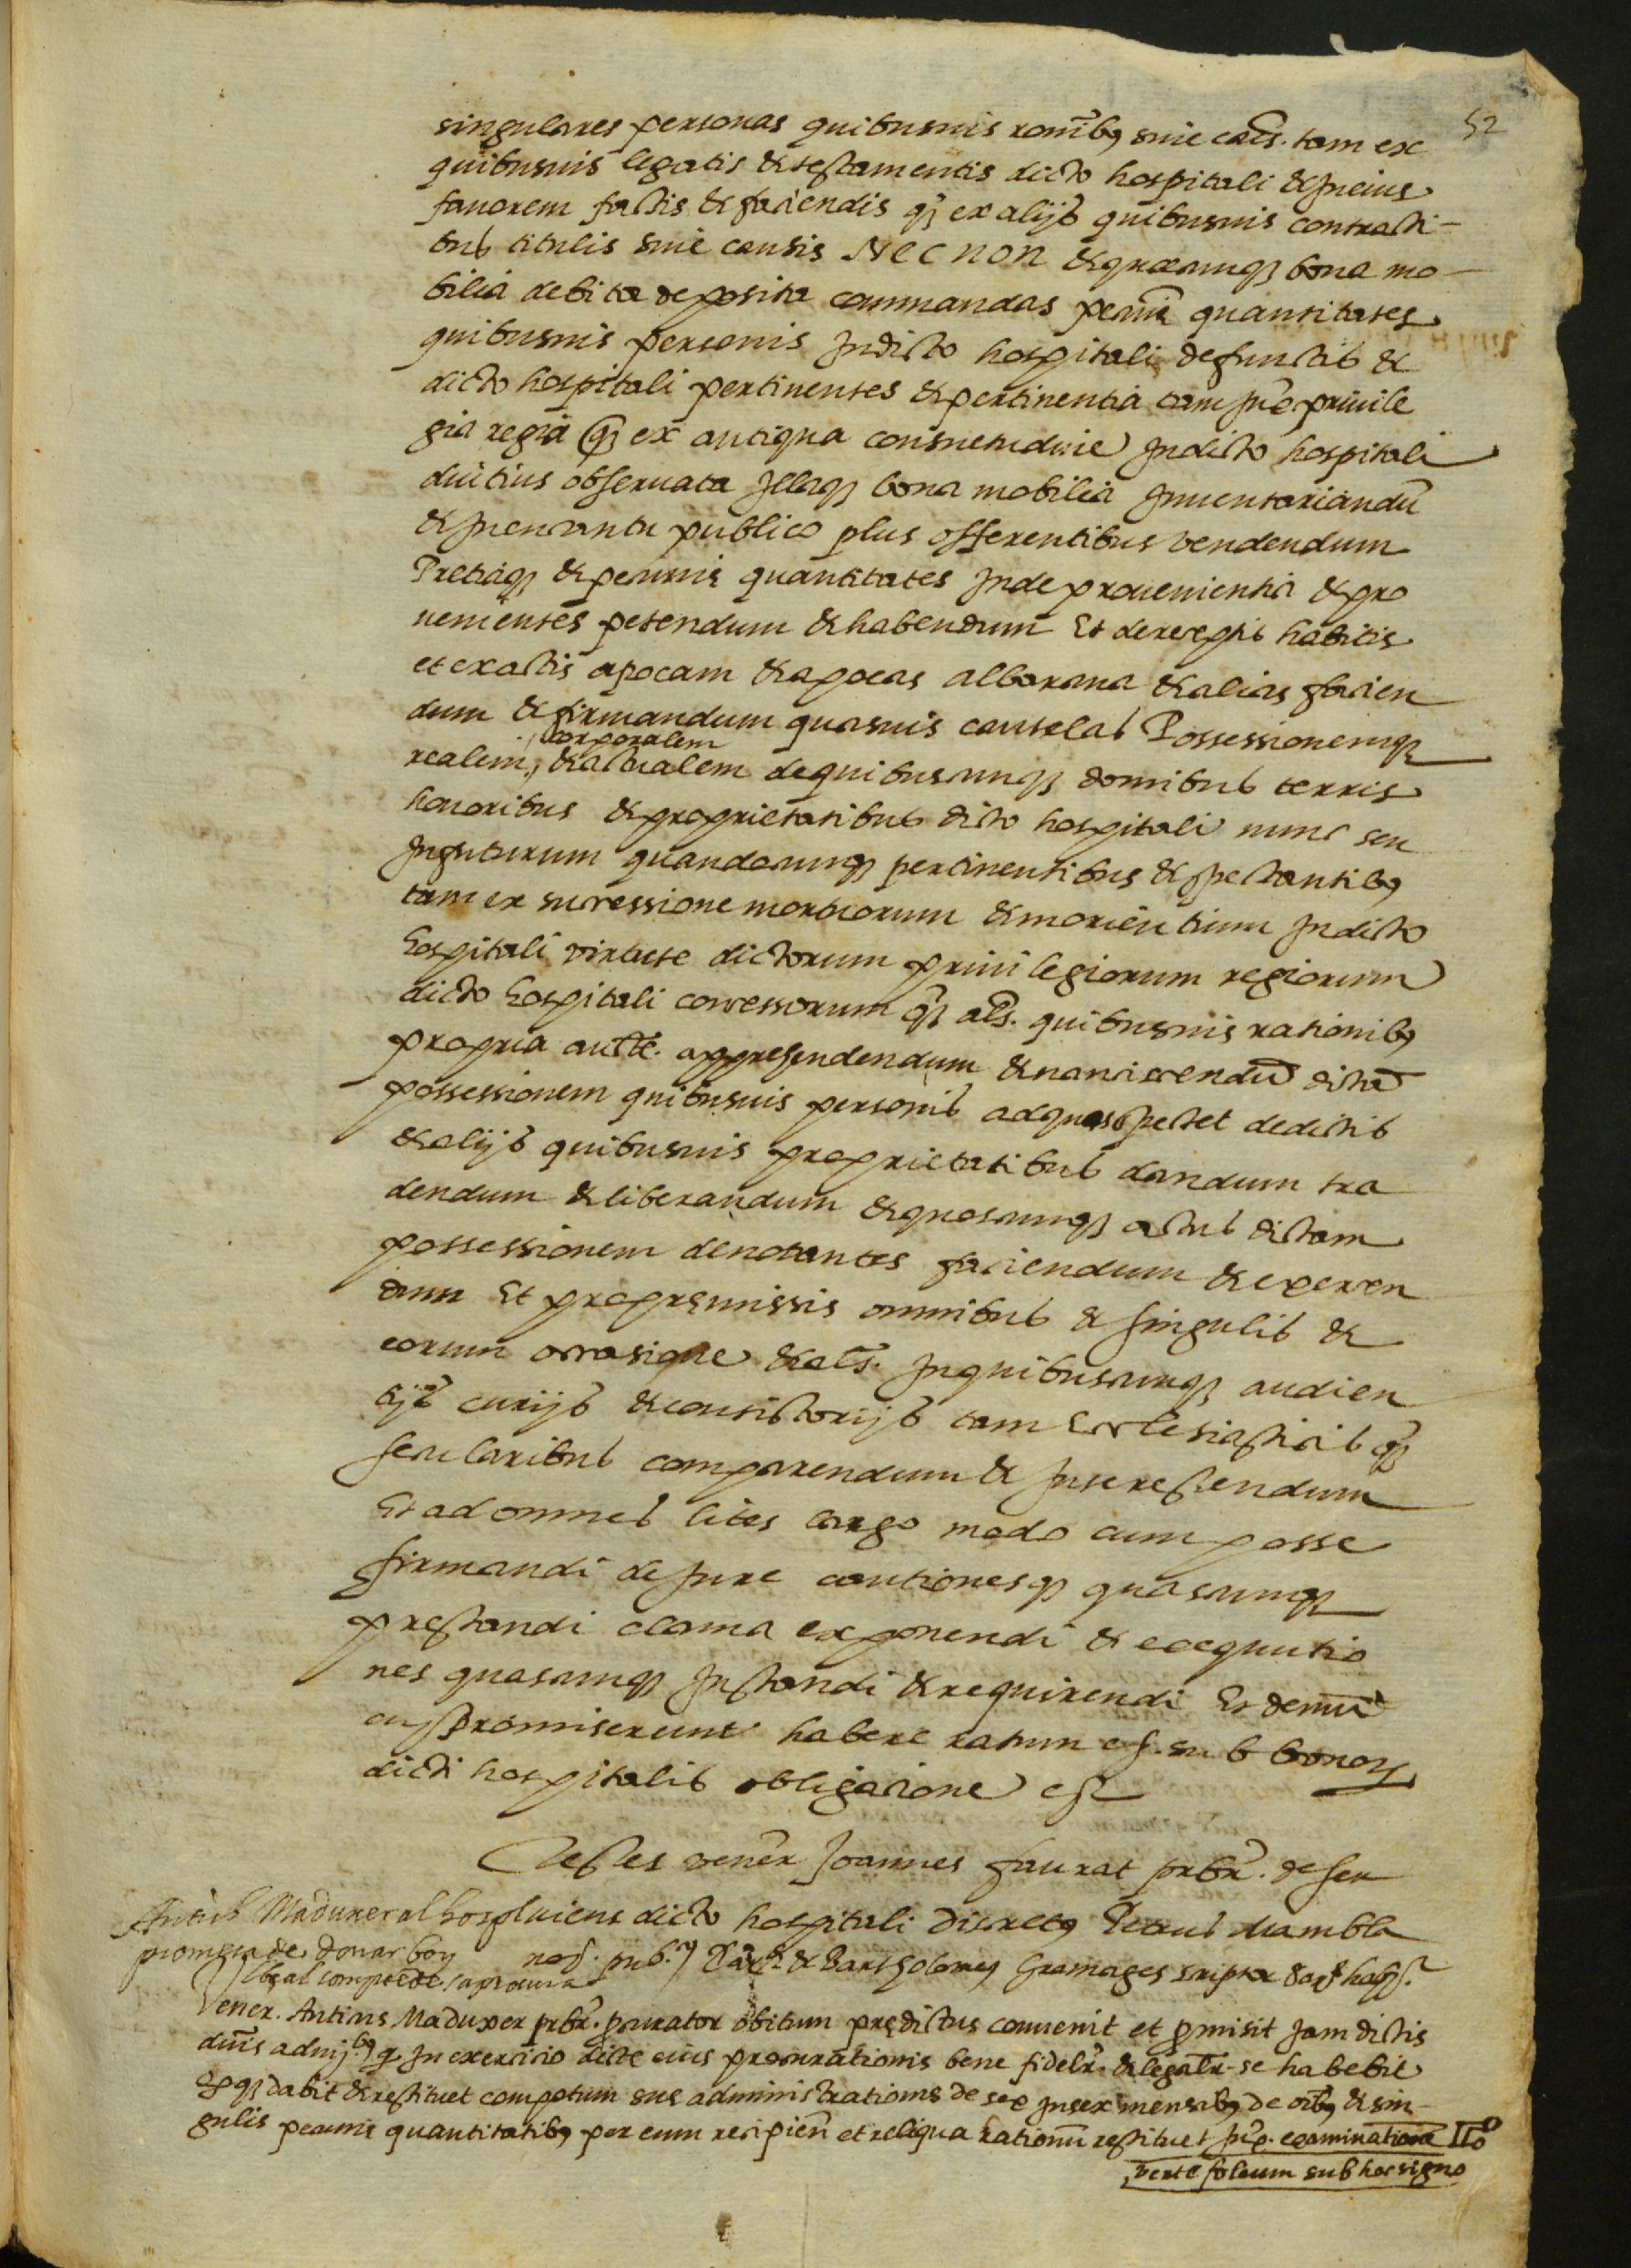 52
singulares personas quibusuis ronibꝰ siue cais. tam ex
quibusuis legatis & testamentis dicto hospitali & In eius
fauorem factis & faciendis qȝ ex alijs quibusuis contracti-
bus titulis siue causis Nec non & quecumqȝ bona mo-
bilia debita deposita commandas pecunie quantitates
quibusuis personis In dicto hospitali defunctis &
dicto hospitali pertinentes & pertinentia tam Iuxᵉ priuile
gia regia qȝ ex antiqua consuetudine In dicto hospitali
diutius obseruata Illaqȝ bona mobilia Inuentariandū
& Inencantu publico plus offerentibus vendendum
Pretiaqȝ & pecunie quantitates Inde prouenientia & pro
uenientes petendum & habendum Et de receptis habitis
et exactis apocam & apocas albarana & alias facien
dum & firmandum quasuis cautelas Possessionemqȝ
realem, corporalem & actualem de quibuscumqȝ domibus terris
honoribus & proprietatibus dicto hospitali nunc seu
In futurum quandocumqȝ pertinentibus & spectantibꝰ
tam ex successione mortuorum & morientium In dicto
hospitali virtute dictorum priuilegiorum regiorum
dicto hospitali concessorum qȝ als. quibusuis rationibꝰ
propria aucte. apprehendendum & nanciscendū dictā
possessionem quibusuis personis ad quas spectet de dictis
& alijs quibusuis proprietatibus dandum tra
dendum & liberandum & quoscumqȝ actus dictam
possessionem denotantes faciendum & exercen
dum Et pro premissis omnibus & singulis &
eorum occasione & als. In quibuscumqȝ audien
tijs curijs & consistorijs tam Ecclesiasticis qȝ
secularibus comparendum & Interessendum
Et ad omnes lites largo modo cum posse
firmandi de Iure cautionesqȝ quascumqȝ
prestandi clama exponendi & exequutio
nes quascumqȝ Instandi & requirendi Et demū
promiserunt habere ratum etc. sub bonoꝝ
dicti hospitalis obligacione etc
Testes vener Joannes faurat prbr. de ser
uiens dicto hospitali Discretꝰ Petrus Mambla
not. pub. Barᵉ & Bartholomeꝰ Gramages scriptor
Antich Maduxer al hospl
promesa de donar bon
& leal compte de la procura
Vener. Antius Maduxer prbr. procurator obitum predictus conuenit et promisit Jam dictis
dnis admj. qᵈ In exercicio dicte eius procurationis bene fidelr. & legalr. se habebit
& qȝ dabit & restituet compotum sue administrationis de sex In sex mensibꝰ de oībꝰ & sin-
gulis pecunie quantitatibꝰ per eum recipien et reliqua rationū restituet examinatione
verte foleum sub hoc signo